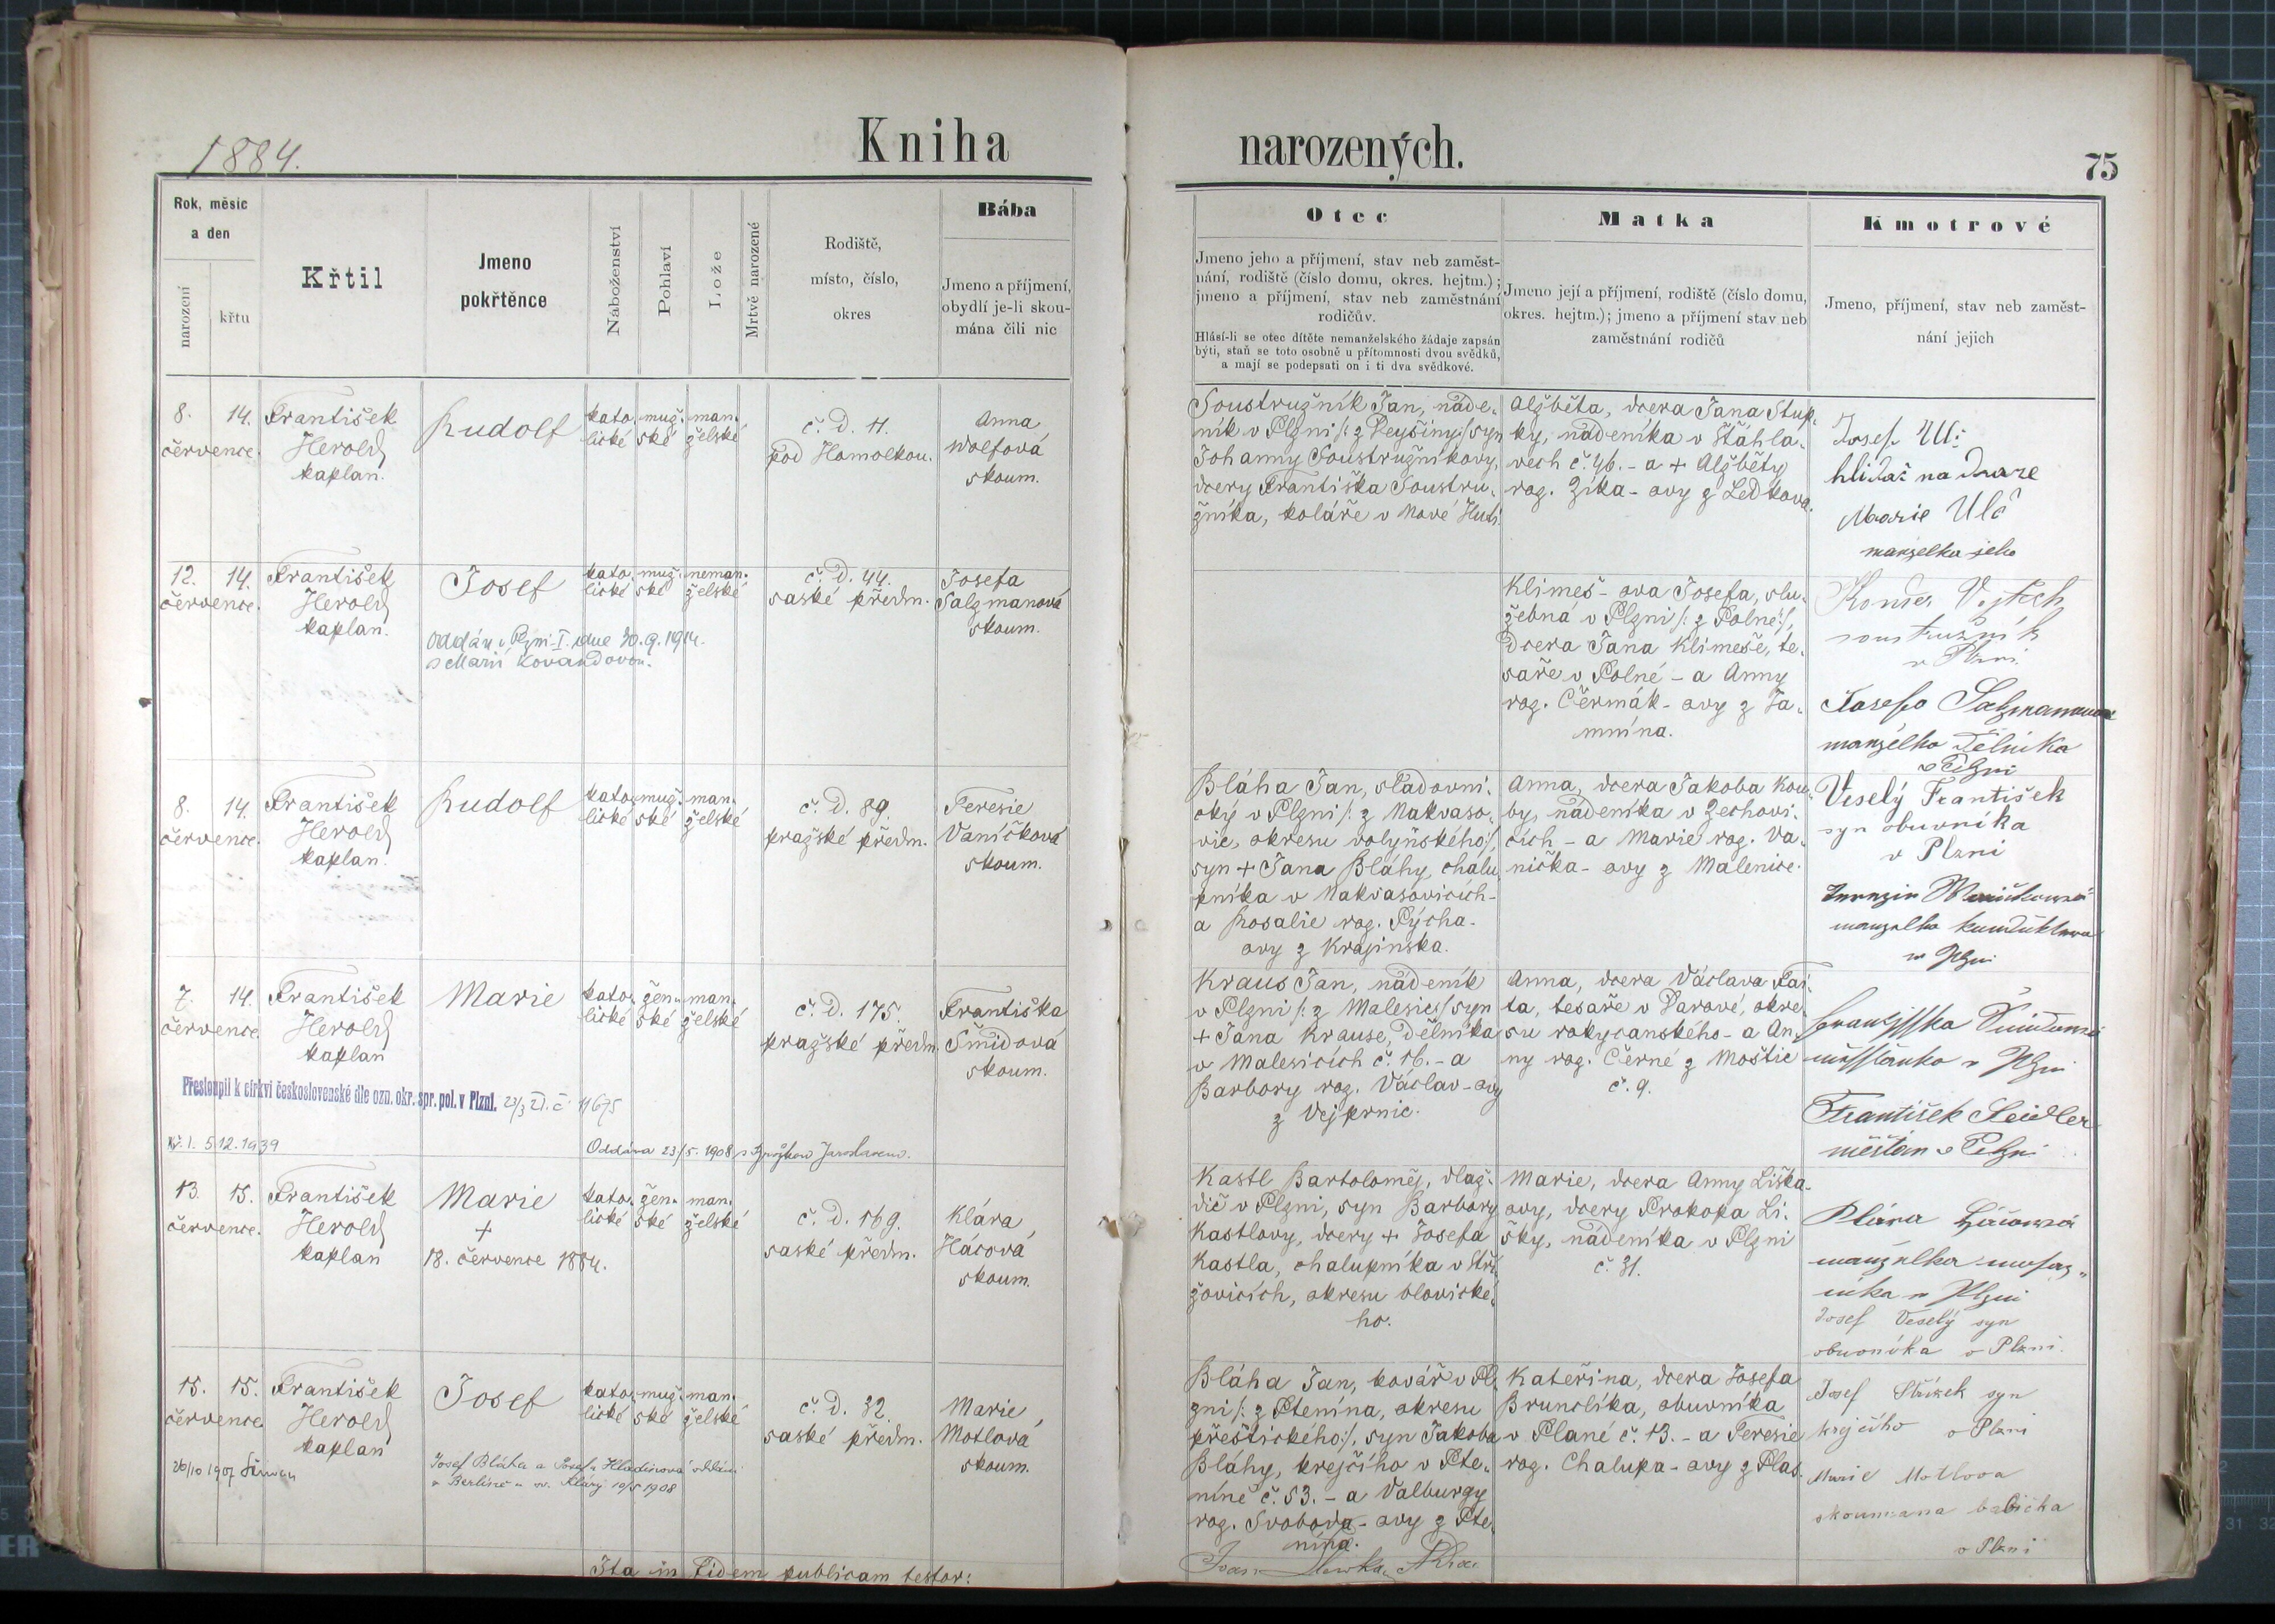 1884.
Kniha
narozených.
75
Rok, měsíc
a den
narození
křtu
Křtil
Jmeno
pokřtěnce
Náboženství
Pohlaví
Lože
Mrtvě narozené
Rodiště,
místo, číslo,
okres
Bába
Jmeno a příjmení,
obydlí je-li skou-
mána čili nic
Otec
Jmeno jeho a příjmení, stav neb zaměst-
nání, rodiště (číslo domu, okres. hejtm.);
jmeno a příjmení, stav neb zaměstnání
rodičův.
Hlásí-li se otec dítěte nemanželského žádaje zapsán
býti, staň se toto osobně u přítomnosti dvou svědků,
a mají se podepsati on i ti dva svědkové.
Matka
Jmeno její a příjmení, rodiště (číslo domu,
okres. hejtm.); jmeno a příjmení stav neb
zaměstnání rodičů
Kmotrové
Jmeno, příjmení, stav neb zaměst-
nání jejich
8. 14.
července.
František
Herold
kaplan.
Rudolf
kato. muž. man.
lické ské želské
č. D. 11.
pod Homolkou.
Anna
Wolfová
skoum.
Soustružník Jan, náde-
ník v Plzni /: z Pejšiny:/ syn
Johanny Soustružníkovy,
dcery Františka Soustru-
žníka, koláře v Nové Huti.
Alžběta, dcera Jana Stup-
ky, nádeníka v Štáhla-
vech č. 46. - a + Alžběty
roz. Zíka-ovy z Ledkova.
Josef Ulč
hlídač na dráze
Marie Ulč
manželka jeho
12. 14.
července.
František
Herold
kaplan.
Josef
kato. muž. neman.
lické ské želské
č. D. 44.
saské předm.
Josefa
Salzmanová
skoum.
Oddán v Plzni I. dne 30.9.1914.
s Marií Kovandovou.
Klimeš-ova Josefa, slu-
žebná v Plzni /: z Polné:/,
dcera Jana Klimeše, te-
saře v Polné - a Anny
roz. Čermák-ovy z Ja-
mnína.
Vojtěch
soustružník
v Plzni.
Josefa Salzmannová
manželka dělníka
v Plzni
8. 14.
července.
František
Herold
kaplan.
Rudolf
kato. muž. man.
lické ské želské
č. D. 89.
pražské předm.
Teresie
Vaníčková
skoum.
Bláha Jan, sladovni-
cký v Plzni /: z Nakvaso-
vic, okresu volyňského:/,
syn + Jana Bláhy, chalu-
pníka v Nakvasovicích -
a Rosalie roz. Pýcha-
ovy z Krajinska.
Anna, dcera Jakoba Kou-
by, nádeníka v Zechovi-
cích - a Marie roz. Va-
nička-ovy z Malenice.
Veselý František
syn obuvníka
v Plzni
manželka
v Plzni
7. 14.
července.
František
Herold
kaplan
Marie
kato. žen. man.
lické ské želské
č. D. 175.
pražské předm.
Františka
Šmídová
skoum.
Přestoupil k církvi československé dle ozn. okr. spr. pol. v Plzni. 23/3 21. č. 11675
Kř. l. 5.12.1939
Oddána 23/5. 1908 s Jaroslavem.
Kraus Jan, nádeník
v Plzni /: z Malesic:/ syn
+ Jana Krause, dělníka
v Malesicích č. 16. - a
Barbory roz. Václav-ovy
z Vejprnic.
Anna, dcera Václava Fai-
ta, tesaře v Darové, okre-
su rokycanského - a An-
ny roz. Černé z Moštic
č. 9.
v Plzni
František Seidler
měšťan v Plzni
13. 15.
července.
František
Herold
kaplan
Marie
+
18. července 1884.
kato. žen. man.
lické ské želské
č. D. 169.
saské předm.
Klára
Hácová
skoum.
Kastl Bartoloměj, dlaž-
dič v Plzni, syn Barbory
Kastlovy, dcery + Josefa
Kastla, chalupníka v Stří-
žovicích, okresu blovické-
ho.
Marie, dcera Anny Liška-
ovy, dcery Prokopa Li-
šky, nádeníka v Plzni
č. 31.
Klára Hácová
manželka mosaz-
níka v Plzni
Josef Veselý syn
obuvníka v Plzni.
15. 15.
července
František
Herold
kaplan
Josef
kato. muž. man.
lické ské želské
č. D. 32.
saské předm.
Marie
Motlová
skoum.
26/10 1907
Josef Bláha a Josefa Hladinová oddáni
v Berlíně u sv. Kláry 10/5 1908
Bláha Jan, kovář v Pl-
zni /: z Ptenína, okresu
přeštického:/, syn Jakoba
Bláhy, krejčího v Pte-
níně č. 53. - a Valburgy
roz. Svoboda-ovy z Pte-
nína.
Kateřina, dcera Josefa
Brunclíka, obuvníka
v Plané č. 13. - a Teresie
roz. Chalupa-ovy z Plas.
Josef Stránek syn
krejčího v Plzni
Marie Motlova
skoumana babička
v Plzni
Ita in fidem publicam testor: